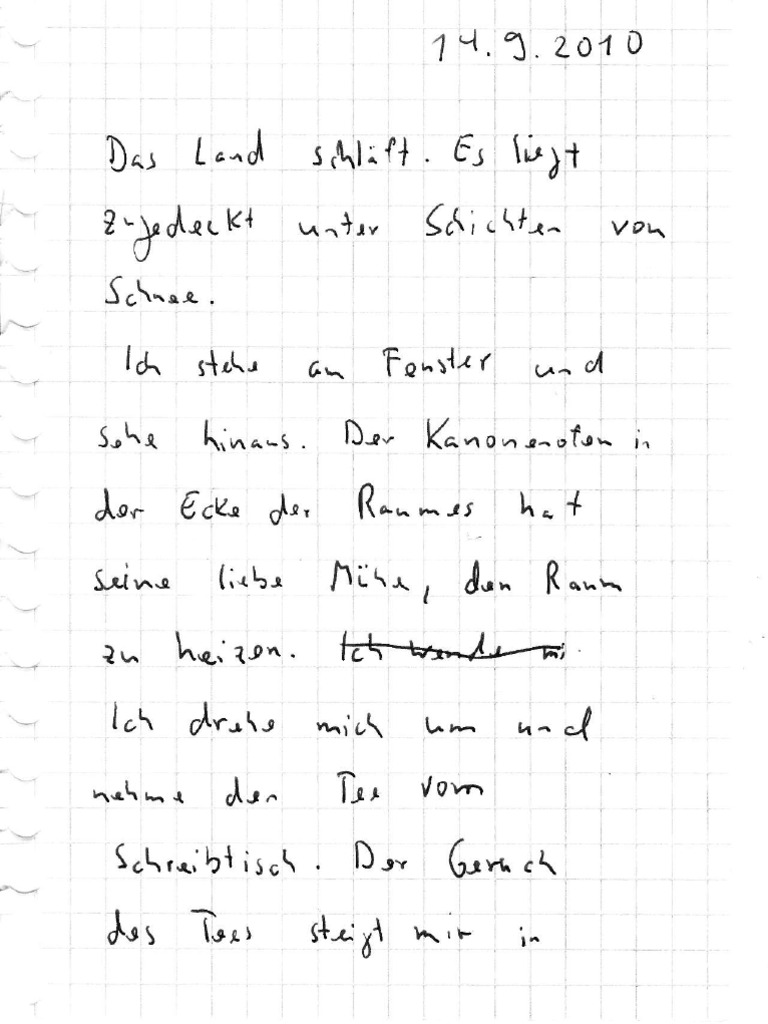 14.9.2010
Das Land schläft. Es liegt
zugedeckt unter Schichten von
Schnee.
Ich stehe am Fenster und
sehe hinaus. Der Kanonenofen in
der Ecke des Raumes hat
seine liebe Mühe, den Raum
zu heizen. Ich wende mi
Ich drehe mich um und
nehme den Tee vom
Schreibtisch. Der Geruch
des Tees steigt mir in